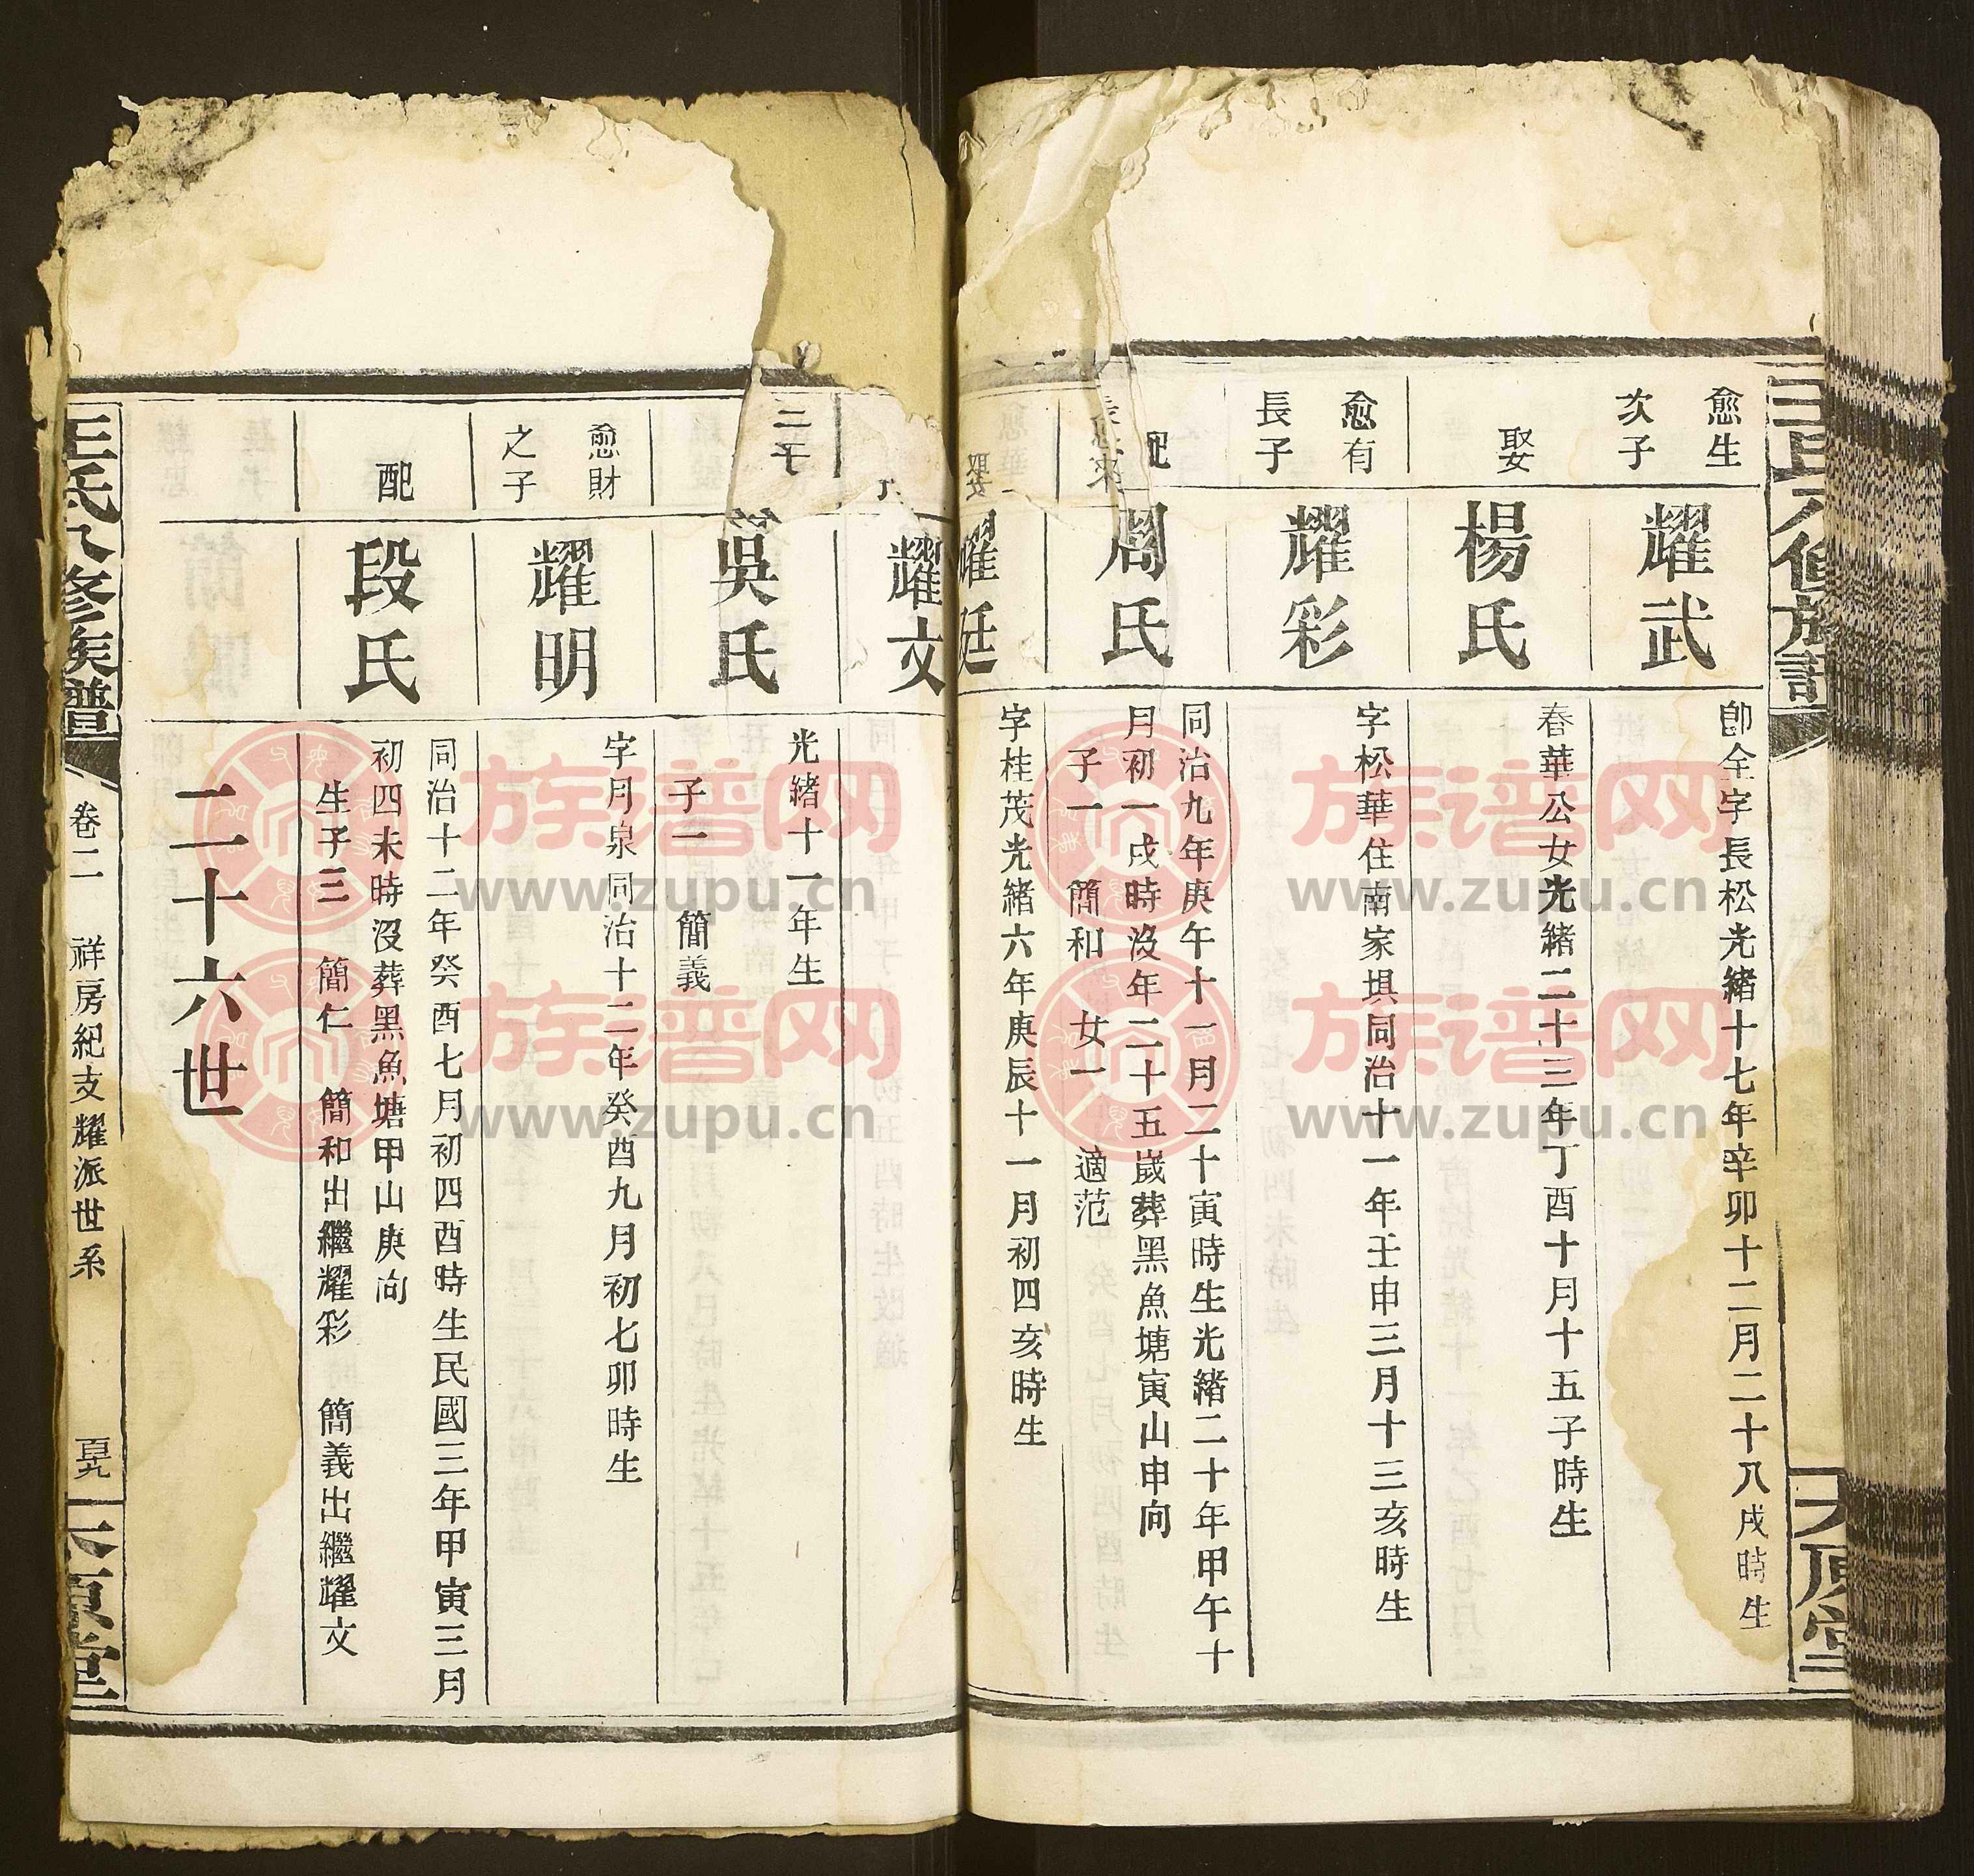 王氏八修族譜
太原堂
愈生
次子
耀武
卽全字長松光緒十七年辛卯十二月二十八戌時生
娶
楊氏
春華公女光緒二十三年丁酉十月十五子時生
愈有
長子
耀彩
字松華住南家垻同治十一年壬申三月十三亥時生
配
周氏
同治九年庚午十一月二十寅時生光緒二十年甲午十
月初一戌時沒年二十五歲葬黑魚塘寅山申向
子一 簡和 女一 適范
愈來
長
耀廷
字桂茂光緒六年庚辰十一月初四亥時生
娶
二子
耀文
吳氏
光緒十一年生
子一 簡義
愈財
之子
耀明
字月泉同治十二年癸酉九月初七卯時生
配
段氏
同治十二年癸酉七月初四酉時生民國三年甲寅三月
初四未時沒葬黑魚塘甲山庚向
生子三 簡仁 簡和出繼耀彩 簡義出繼耀文
二十六世
王氏八修族譜
卷二 祥房紀支耀派世系
太原堂
族谱网
www.zupu.cn
族谱网
www.zupu.cn
族谱网
www.zupu.cn
族谱网
www.zupu.cn